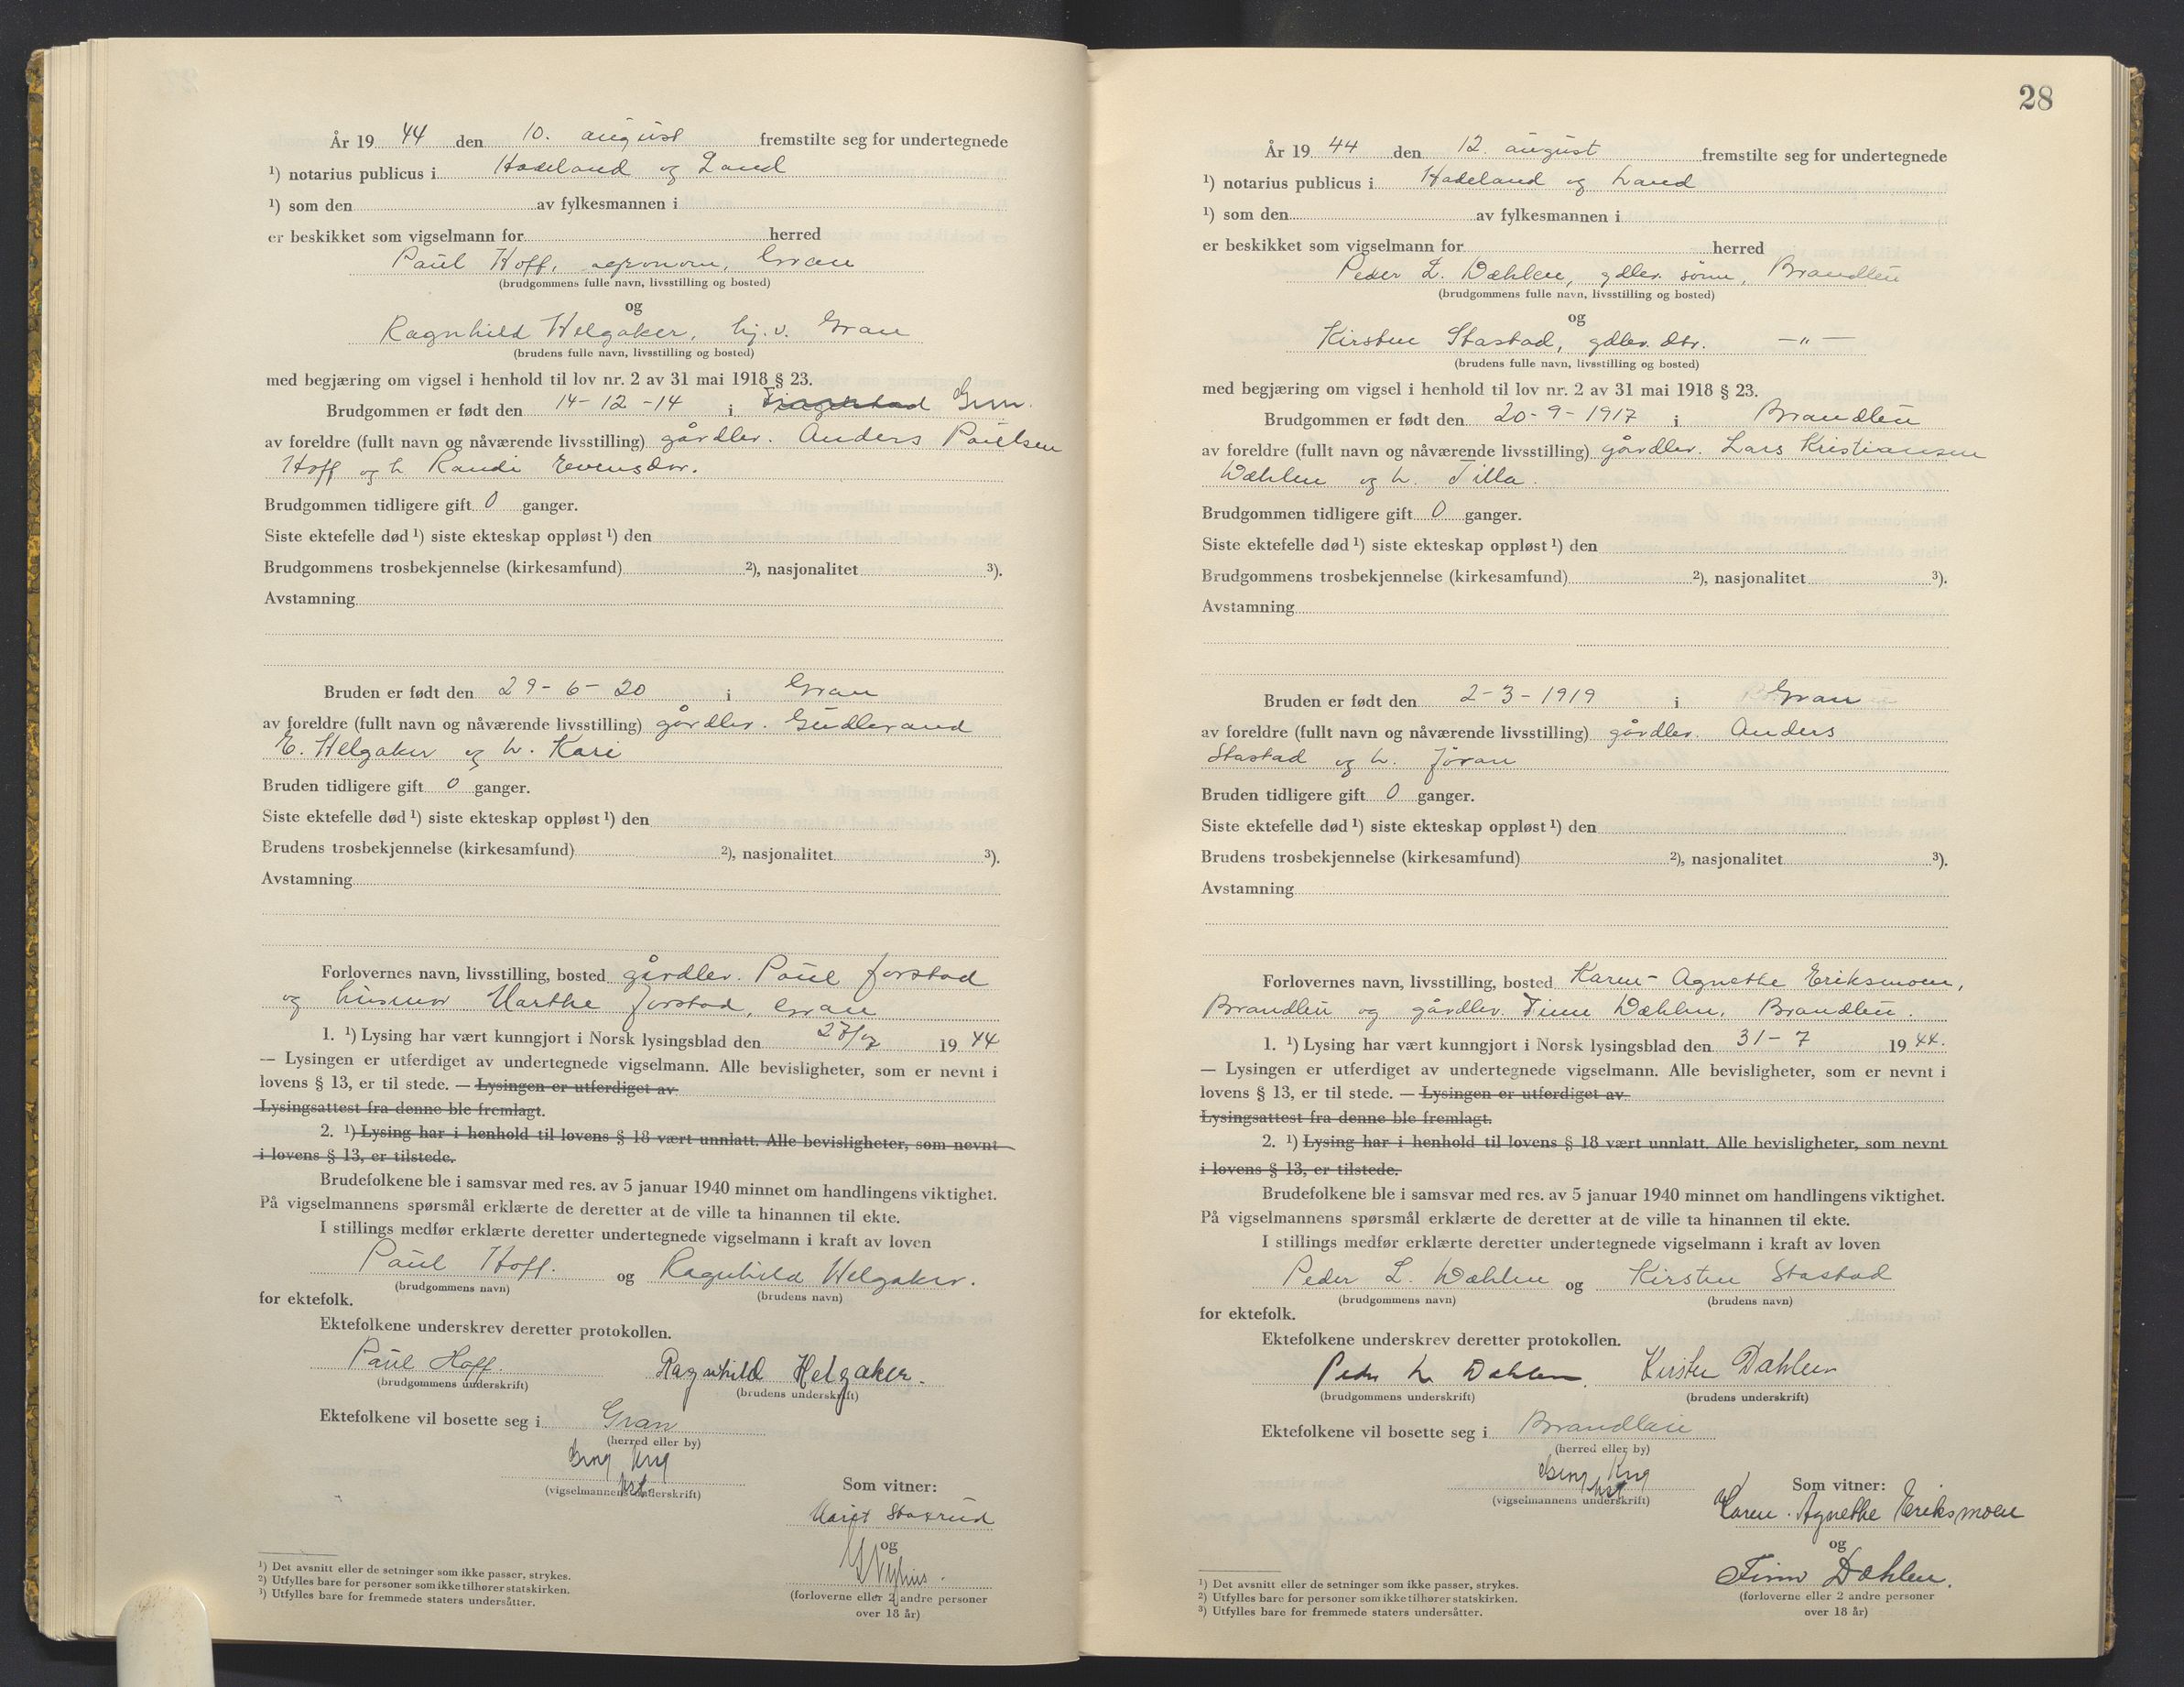 År 19 44 den 10. august fremstilte seg for undertegnede
¹) notarius publicus i Hadeland og Land
¹) som den av fylkesmannen i
er beskikket som vigselmann for herred
Paul Hoff, agronom, Gran
(brudgommens fulle navn, livsstilling og bosted)
og
Ragnhild Helgaker, hj.v. Gran
(brudens fulle navn, livsstilling og bosted)
med begjæring om vigsel i henhold til lov nr. 2 av 31 mai 1918 § 23.
Brudgommen er født den 14-12-14 i
av foreldre (fullt navn og nåværende livsstilling) gårdbr. Anders Paulsen
Hoff og h. Randi Evensdtr.
Brudgommen tidligere gift 0 ganger.
Siste ektefelle død ¹) siste ekteskap oppløst ¹) den
Brudgommens trosbekjennelse (kirkesamfund) ²), nasjonalitet ³).
Avstamning
Bruden er født den 29-6-20 i Gran
av foreldre (fullt navn og nåværende livsstilling) gårdbr. Gudbrand
E. Helgaker og h. Kari
Bruden tidligere gift 0 ganger.
Siste ektefelle død ¹) siste ekteskap oppløst ¹) den
Brudens trosbekjennelse (kirkesamfund) ²), nasjonalitet ³).
Avstamning
Forlovernes navn, livsstilling, bosted gårdbr. Paul Jorstad
og husmor Marthe Jorstad, Gran
1. ¹) Lysing har vært kunngjort i Norsk lysingsblad den 27/7 19 44
— Lysingen er utferdiget av undertegnede vigselmann. Alle bevisligheter, som er nevnt i
lovens § 13, er til stede. — Lysingen er utferdiget av
Lysingsattest fra denne ble fremlagt.
2. ¹) Lysing har i henhold til lovens § 18 vært unnlatt. Alle bevisligheter, som nevnt
i lovens § 13, er tilstede.
Brudefolkene ble i samsvar med res. av 5 januar 1940 minnet om handlingens viktighet.
På vigselmannens spørsmål erklærte de deretter at de ville ta hinannen til ekte.
I stillings medfør erklærte deretter undertegnede vigselmann i kraft av loven
Paul Hoff. og Ragnhild Helgaker.
(brudgommens navn) (brudens navn)
for ektefolk.
Ektefolkene underskrev deretter protokollen.
Paul Hoff. Ragnhild Helgaker.
(brudgommens underskrift) (brudens underskrift)
Ektefolkene vil bosette seg i Gran
(herred eller by)
(vigselmannens underskrift)
Som vitner:
Marit Staxrud
og
(forloverne eller 2 andre personer
over 18 år)
¹) Det avsnitt eller de setninger som ikke passer, strykes.
²) Utfylles bare for personer som ikke tilhører statskirken.
³) Utfylles bare for fremmede staters undersåtter.
28
År 19 44 den 12. august fremstilte seg for undertegnede
¹) notarius publicus i Hadeland og Land
¹) som den av fylkesmannen i
er beskikket som vigselmann for herred
Peder L. Dæhlen, gdbr. sønn, Brandbu
(brudgommens fulle navn, livsstilling og bosted)
og
Kirsten Stastad, gdbr. dtr. —„—
(brudens fulle navn, livsstilling og bosted)
med begjæring om vigsel i henhold til lov nr. 2 av 31 mai 1918 § 23.
Brudgommen er født den 20-9-1917 i Brandbu
av foreldre (fullt navn og nåværende livsstilling) gårdbr. Lars Kristiansen
Dæhlen og h. Tilla.
Brudgommen tidligere gift 0 ganger.
Siste ektefelle død ¹) siste ekteskap oppløst ¹) den
Brudgommens trosbekjennelse (kirkesamfund) ²), nasjonalitet ³).
Avstamning
Bruden er født den 2-3-1919 i Gran
av foreldre (fullt navn og nåværende livsstilling) gårdbr. Anders
Stastad og h. Jøran
Bruden tidligere gift 0 ganger.
Siste ektefelle død ¹) siste ekteskap oppløst ¹) den
Brudens trosbekjennelse (kirkesamfund) ²), nasjonalitet ³).
Avstamning
Forlovernes navn, livsstilling, bosted Karen-Agnethe Eriksmoen,
Brandbu og gårdbr. Finn Dæhlen, Brandbu.
1. ¹) Lysing har vært kunngjort i Norsk lysingsblad den 31-7 19 44.
— Lysingen er utferdiget av undertegnede vigselmann. Alle bevisligheter, som er nevnt i
lovens § 13, er til stede. — Lysingen er utferdiget av
Lysingsattest fra denne ble fremlagt.
2. ¹) Lysing har i henhold til lovens § 18 vært unnlatt. Alle bevisligheter, som nevnt
i lovens § 13, er tilstede.
Brudefolkene ble i samsvar med res. av 5 januar 1940 minnet om handlingens viktighet.
På vigselmannens spørsmål erklærte de deretter at de ville ta hinannen til ekte.
I stillings medfør erklærte deretter undertegnede vigselmann i kraft av loven
Peder L. Dæhlen og Kirsten Stastad
(brudgommens navn) (brudens navn)
for ektefolk.
Ektefolkene underskrev deretter protokollen.
Peder L Dæhlen. Kirsten Dæhlen
(brudgommens underskrift) (brudens underskrift)
Ektefolkene vil bosette seg i Brandbu
(herred eller by)
(vigselmannens underskrift)
Som vitner:
Karen-Agnethe Eriksmoen
og
Finn Dæhlen.
(forloverne eller 2 andre personer
over 18 år)
¹) Det avsnitt eller de setninger som ikke passer, strykes.
²) Utfylles bare for personer som ikke tilhører statskirken.
³) Utfylles bare for fremmede staters undersåtter.